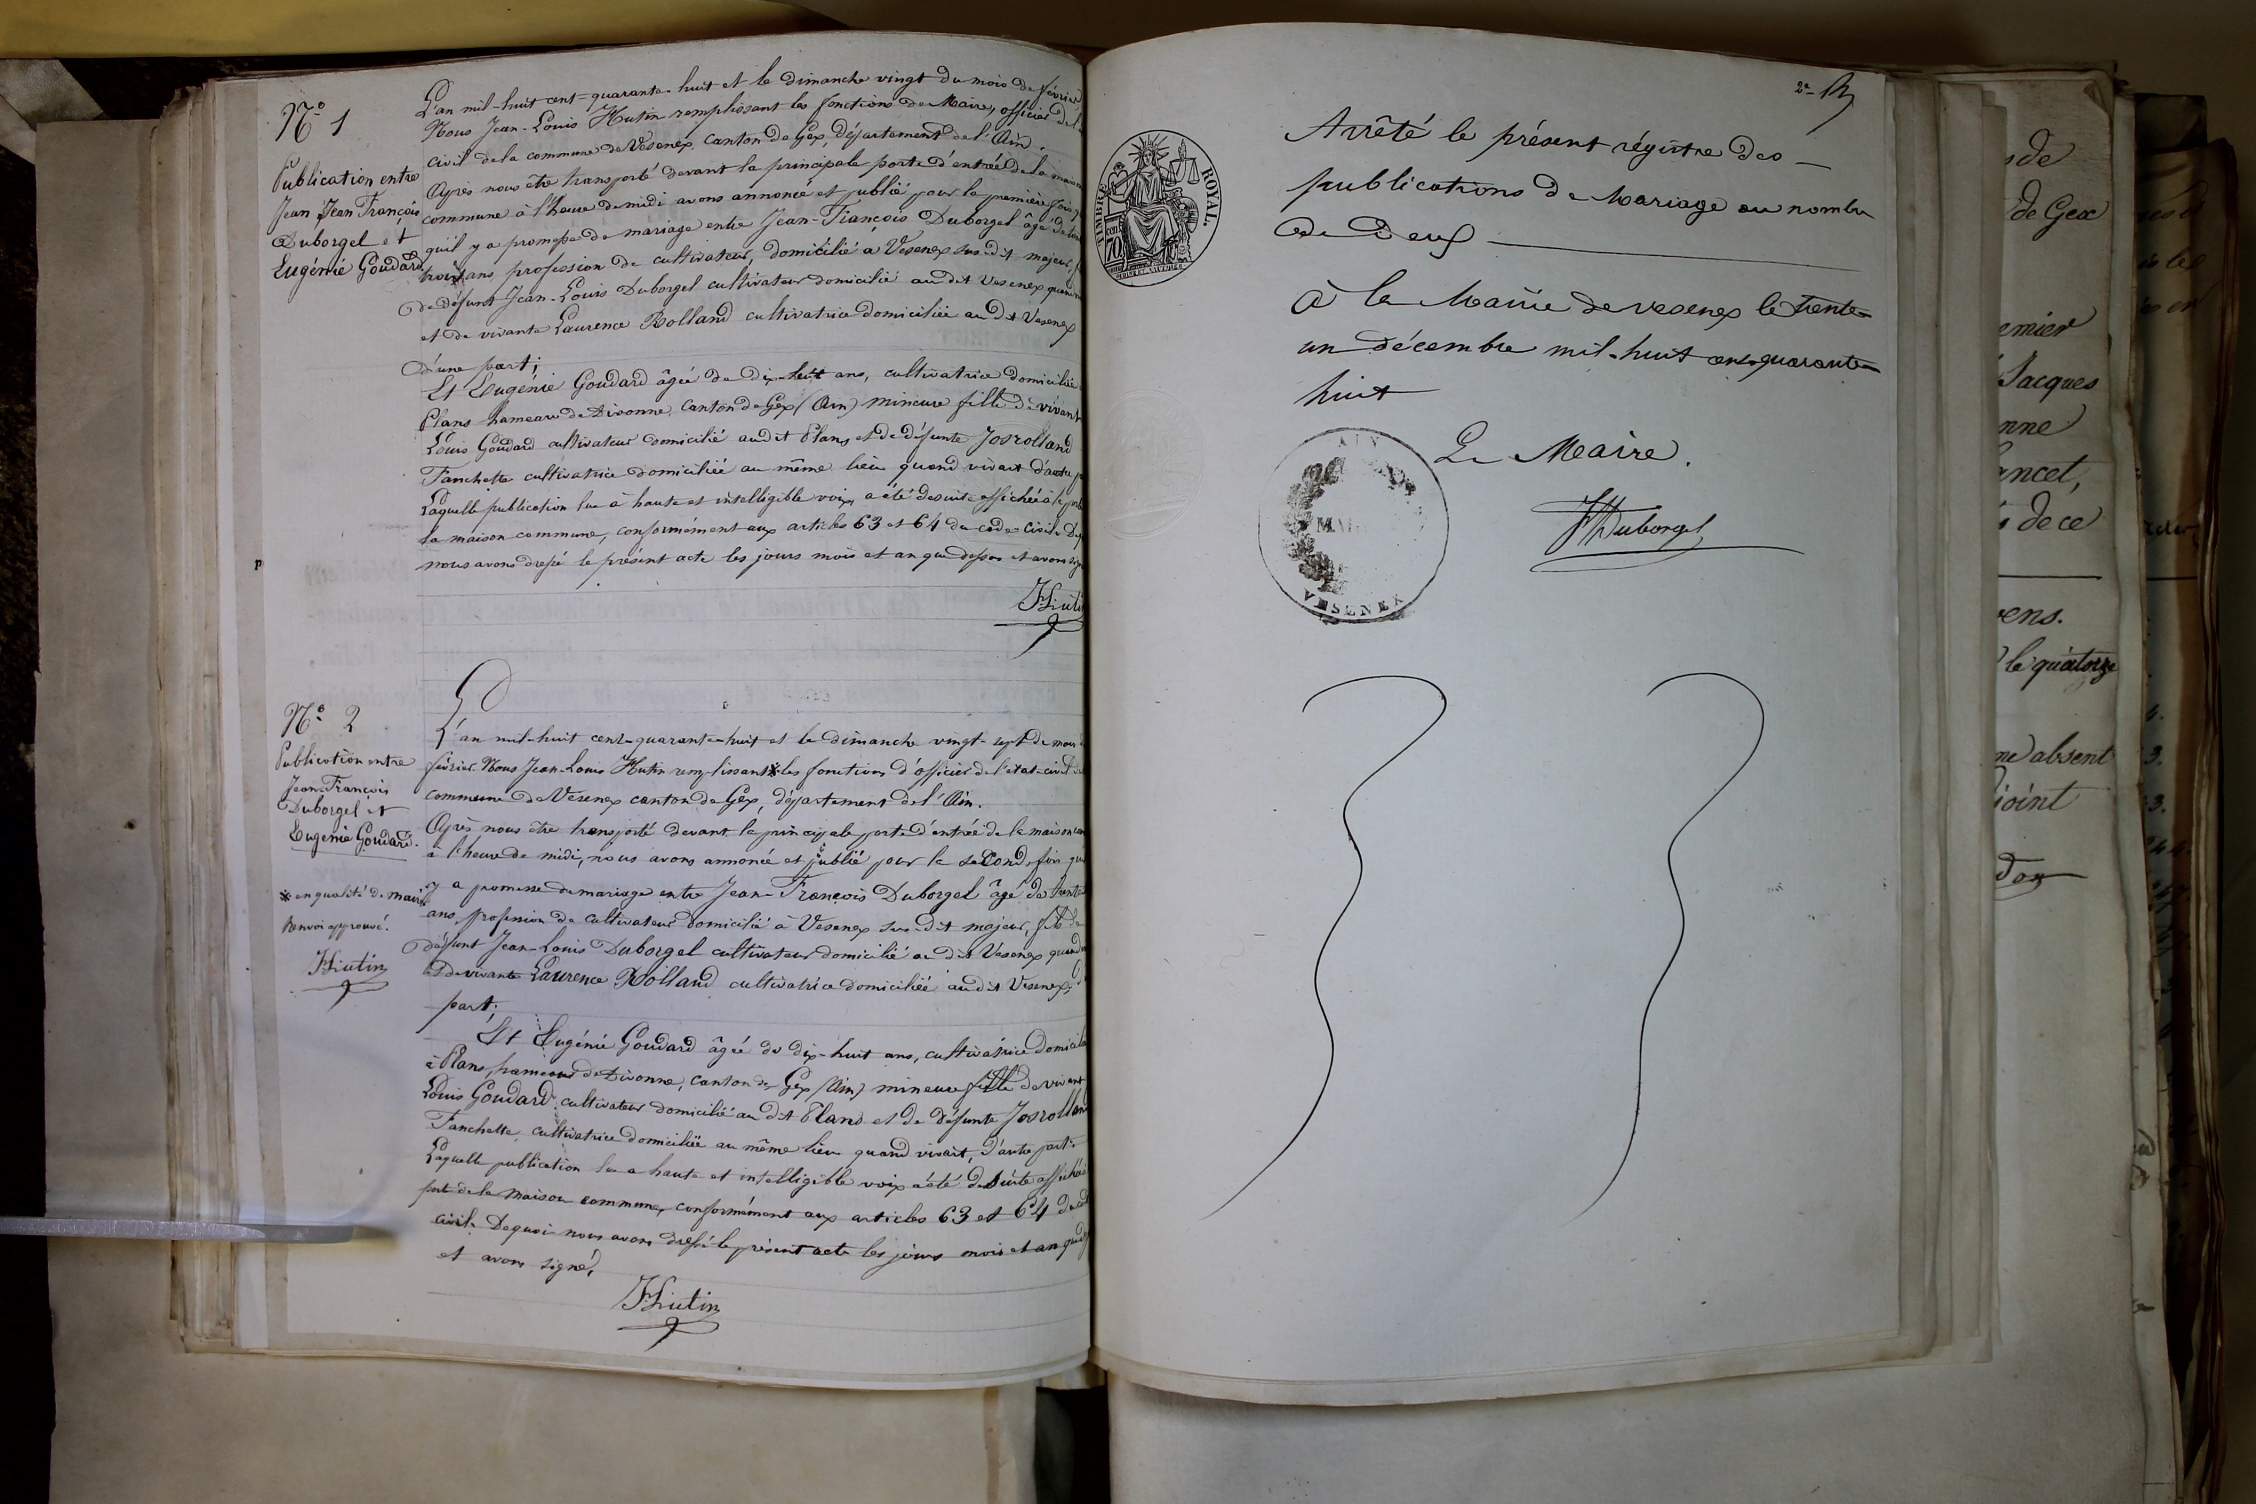 N° 1
Publication entre
Jean Jean François
Duborgel et
Eugénie Goudard
L'an mil-huit cent-quarante-huit et le dimanche vingt du mois de février
Nous Jean-Louis Hutin remplissant les fonctions de Maire, officier de l'
civil de la commune de Vesenex, canton de Gex, département de l'Ain.
Après nous être transporté devant la principale porte d'entrée de la maison
commune à l'heure de midi avons annoncé et publié pour la première fois
qu'il y a promesse de mariage entre Jean-François Duborgel âgé de
trois ans profession de cultivateur, domicilié à Vesenex sus-dit majeur,
de défunt Jean-Louis Duborgel cultivateur domicilié au dit Vesenex quand
et de vivante Laurence Rolland cultivatrice domiciliée au dit Vesenex
d'une part;
Et Eugénie Goudard âgée de dix-huit ans, cultivatrice domiciliée
Plans hameau de Divonne, canton de Gex (Ain) mineure fille de vivant
Louis Goudard cultivateur domicilié audit Plans et de défunte Josrolland
Fanchette cultivatrice domiciliée au même lieu quand vivait d'autre
Laquelle publication lue à haute et intelligible voix, a été de suite affichée à la
la maison commune, conformément aux articles 63 et 64 du code civil. De
nous avons dressé le présent acte les jours mois et an que dessus et avons
JHutin
N° 2
Publication entre
Jean-François
Duborgel et
Eugénie Goudard.
* en qualité de maire
Renvoi approuvé.
JHutin
L'an mil-huit cent-quarante-huit et le dimanche vingt-sept du mois
février Nous Jean-Louis Hutin remplissant * les fonctions d'officier de l'état-civil
commune de Vesenex canton de Gex, département de l'Ain.
Après nous être transporté devant la principale porte d'entrée de la maison
à l'heure de midi, nous avons annoncé et publié pour la seconde fois
y a promesse de mariage entre Jean-François Duborgel âgé de trente
ans, profession de cultivateur domicilié à Vesenex sus-dit majeur, fils de
défunt Jean-Louis Duborgel cultivateur domicilié au dit Vesenex quand
et de vivante Laurence Rolland cultivatrice domiciliée au dit Vesenex,
part;
Et Eugénie Goudard âgée de dix-huit ans, cultivatrice
à Plans, hameau de Divonne, canton de Gex (Ain) mineure fille de vivant
Louis Goudard cultivateur domicilié au dit Plans et de défunte Josrolland
Fanchette, cultivatrice domiciliée au même lieu quand vivait, d'autre part.
Laquelle publication lue a haute et intelligible voix a été de suite affichée
porte de la maison commune, conformément aux articles 63 et 64 du
civil. De quoi nous avons dressé le présent acte les jours mois et an
et avons signé,
JHutin
2e
Arrêté le présent régistre des
publications de Mariage au nombre
de Deux
TIMBRE ROYAL.
70
à la Mairie de Vesenex le trente-
un décembre mil-huit cent-quarante-
huit
Le Maire.
AIN
VESENEX
JFDuborgel
de Gex
Jacques
de ce
le quatorze
absent